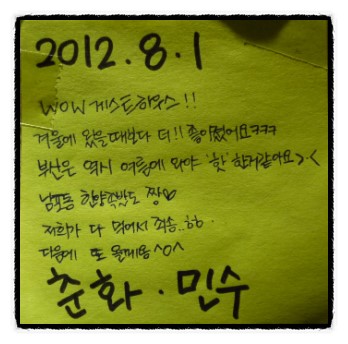 2012.8.1
WOW 게스트하우스!!
겨울에 왔을때보다 더!! 좋아졌어요ㅋㅋㅋ
부산은 역시 여름에 와야 '핫' 한거같아요>.<
남포동 한양족발도 짱♡
저희가 다 먹어서 죄송..ㅎㅎ.
다음에 또 올께용^0^
준화 · 민수